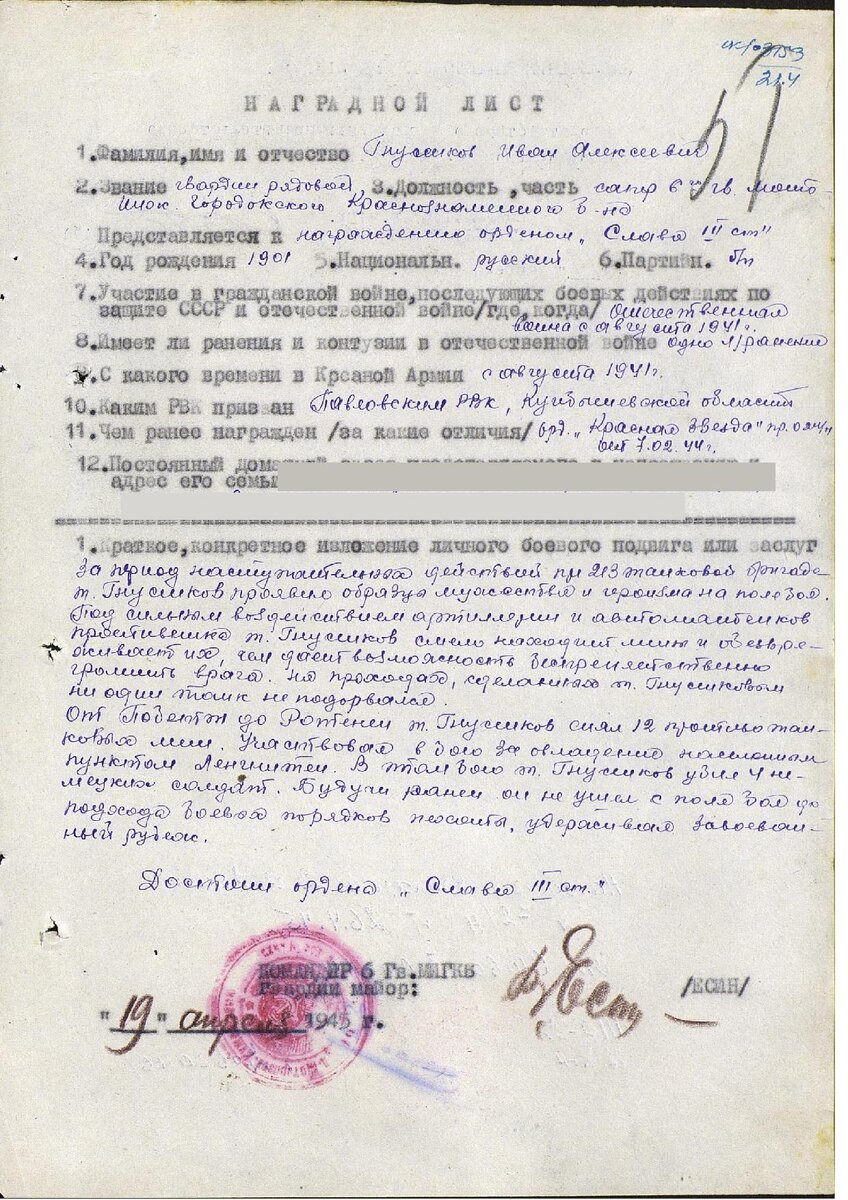 3153
21.4
НАГРАДНОЙ ЛИСТ
1.Фамилия,имя и отчество Гнусиков Иван Алексеевич
2.Звание гвардии рядовой, 3.Должность ,часть сапер 6 гв. мото-
инж. Городокского Краснознаменного б-на
Представляется к награждению орденом „Слава III ст"
4.Год рождения 1901 5.Национальн. русский 6.Партийн. б/п
7.Участие в гражданской войне,последующих боевых действиях по
защите СССР и отечественной войне/Где,когда/ Отечественная
война с августа 1941г.
8.Имеет ли ранения и контузии в отечественной войне одно л/ранение
9.С какого времени в Крсаной Армии с августа 1941г.
10.Каким РВК призван Павловским РВК, Куйбышевской области
11.Чем ранее награжден /за какие отличия/ орд. „Красная Звезда" пр.
от 7.02.44г.
12.Постоянный
адрес его семьи
1.Краткое,конкретное изложение личного боевого подвига или заслуг
За период наступательных действий при 213 танковой бригаде
т. Гнусиков проявил образцы мужества и героизма на поле боя.
Под сильным воздействием артиллерии и автоматчиков
противника т. Гнусиков смело находит мины и обезвре-
живает их, чем дает возможность беспрепятственно
громить врага. на проходах, сделанных т. Гнусиковым
ни один танк не подорвался.
От до т. Гнусиков снял 12 противотан-
ковых мин. Участвовал в бою за овладение населенным
пунктом В этом бою т. Гнусиков убил 4 не-
мецких солдат. Будучи ранен он не ушел с поле боя до
подхода боевых порядков пехоты, удерживал завоеван-
ный рубеж.
Достоин ордена „Слава III ст."
КОМАНДИР 6 Гв.МИГКБ
Гвардии майор: /ЕСИН/
"19" апреля 1945 г.